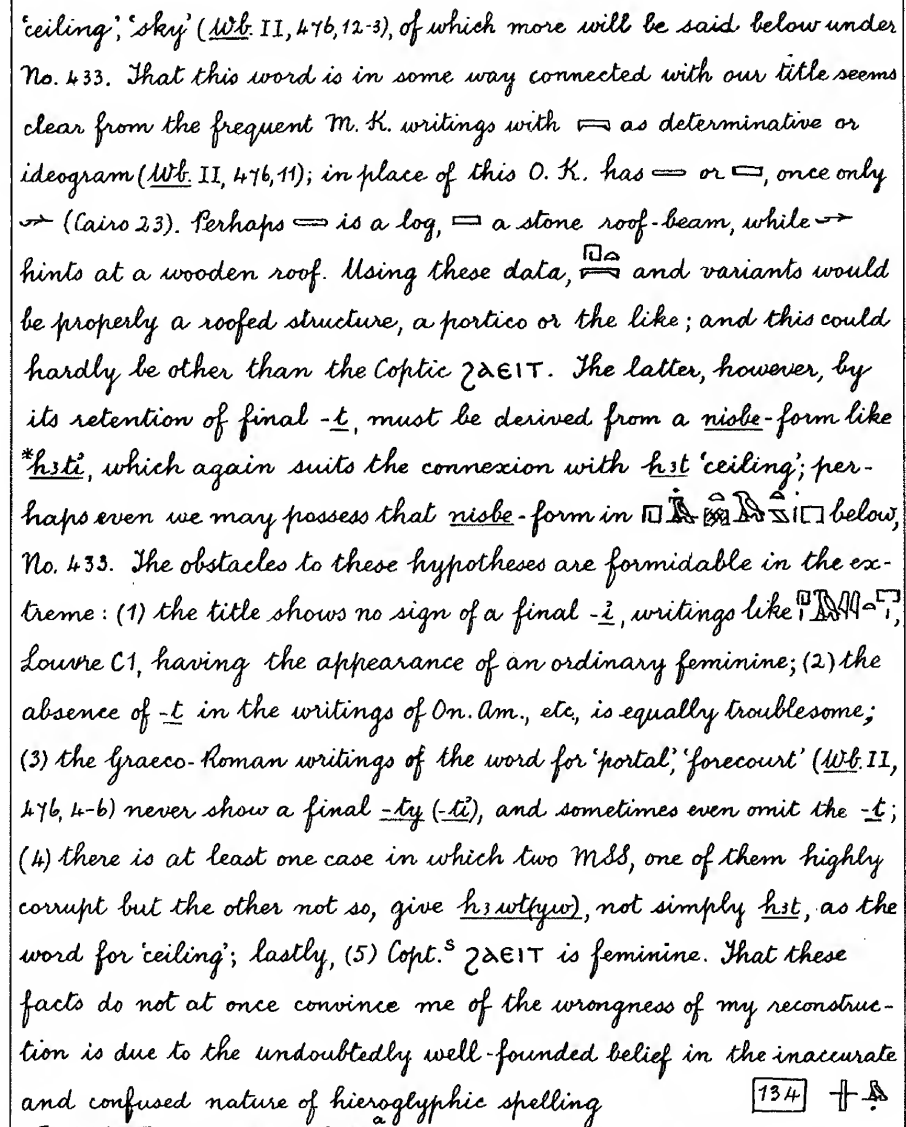 ‘ceiling’, ‘sky’ (Wb. II, 476, 12-3), of which more will be said below under
No. 433. That this word is in some way connected with our title seems
clear from the frequent M. K. writings with 𓉿 as determinative or
ideogram (Wb. II, 476, 11); in place of this O. K. has or , once only
(Cairo 23). Perhaps is a log, a stone roof-beam, while
hints at a wooden roof. Using these data, and variants would
be properly a roofed structure, a portico or the like; and this could
hardly be other than the Coptic ϩⲁⲉⲓⲧ. The latter, however, by
its retention of final -t, must be derived from a nisbe-form like
*hꜣti̓, which again suits the connexion with hꜣt ‘ceiling’; per-
haps even we may possess that nisbe-form in below,
No. 433. The obstacles to these hypotheses are formidable in the ex-
treme: (1) the title shows no sign of a final -i̓, writings like ,
Louvre C1, having the appearance of an ordinary feminine; (2) the
absence of -t in the writings of On. Am., etc, is equally troublesome;
(3) the Graeco-Roman writings of the word for ‘portal’, ‘forecourt’ (Wb. II,
476, 4-6) never show a final -ty (-ti̓), and sometimes even omit the -t;
(4) there is at least one case in which two MSS, one of them highly
corrupt but the other not so, give hꜣwt(yw), not simply hꜣt, as the
word for ‘ceiling’; lastly, (5) Copt.ˢ ϩⲁⲉⲓⲧ is feminine. That these
facts do not at once convince me of the wrongness of my reconstruc-
tion is due to the undoubtedly well-founded belief in the inaccurate
and confused nature of hieroglyphic spelling 134